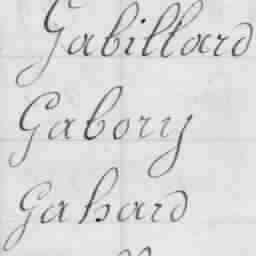 Gabillard
Gabory
Gahard